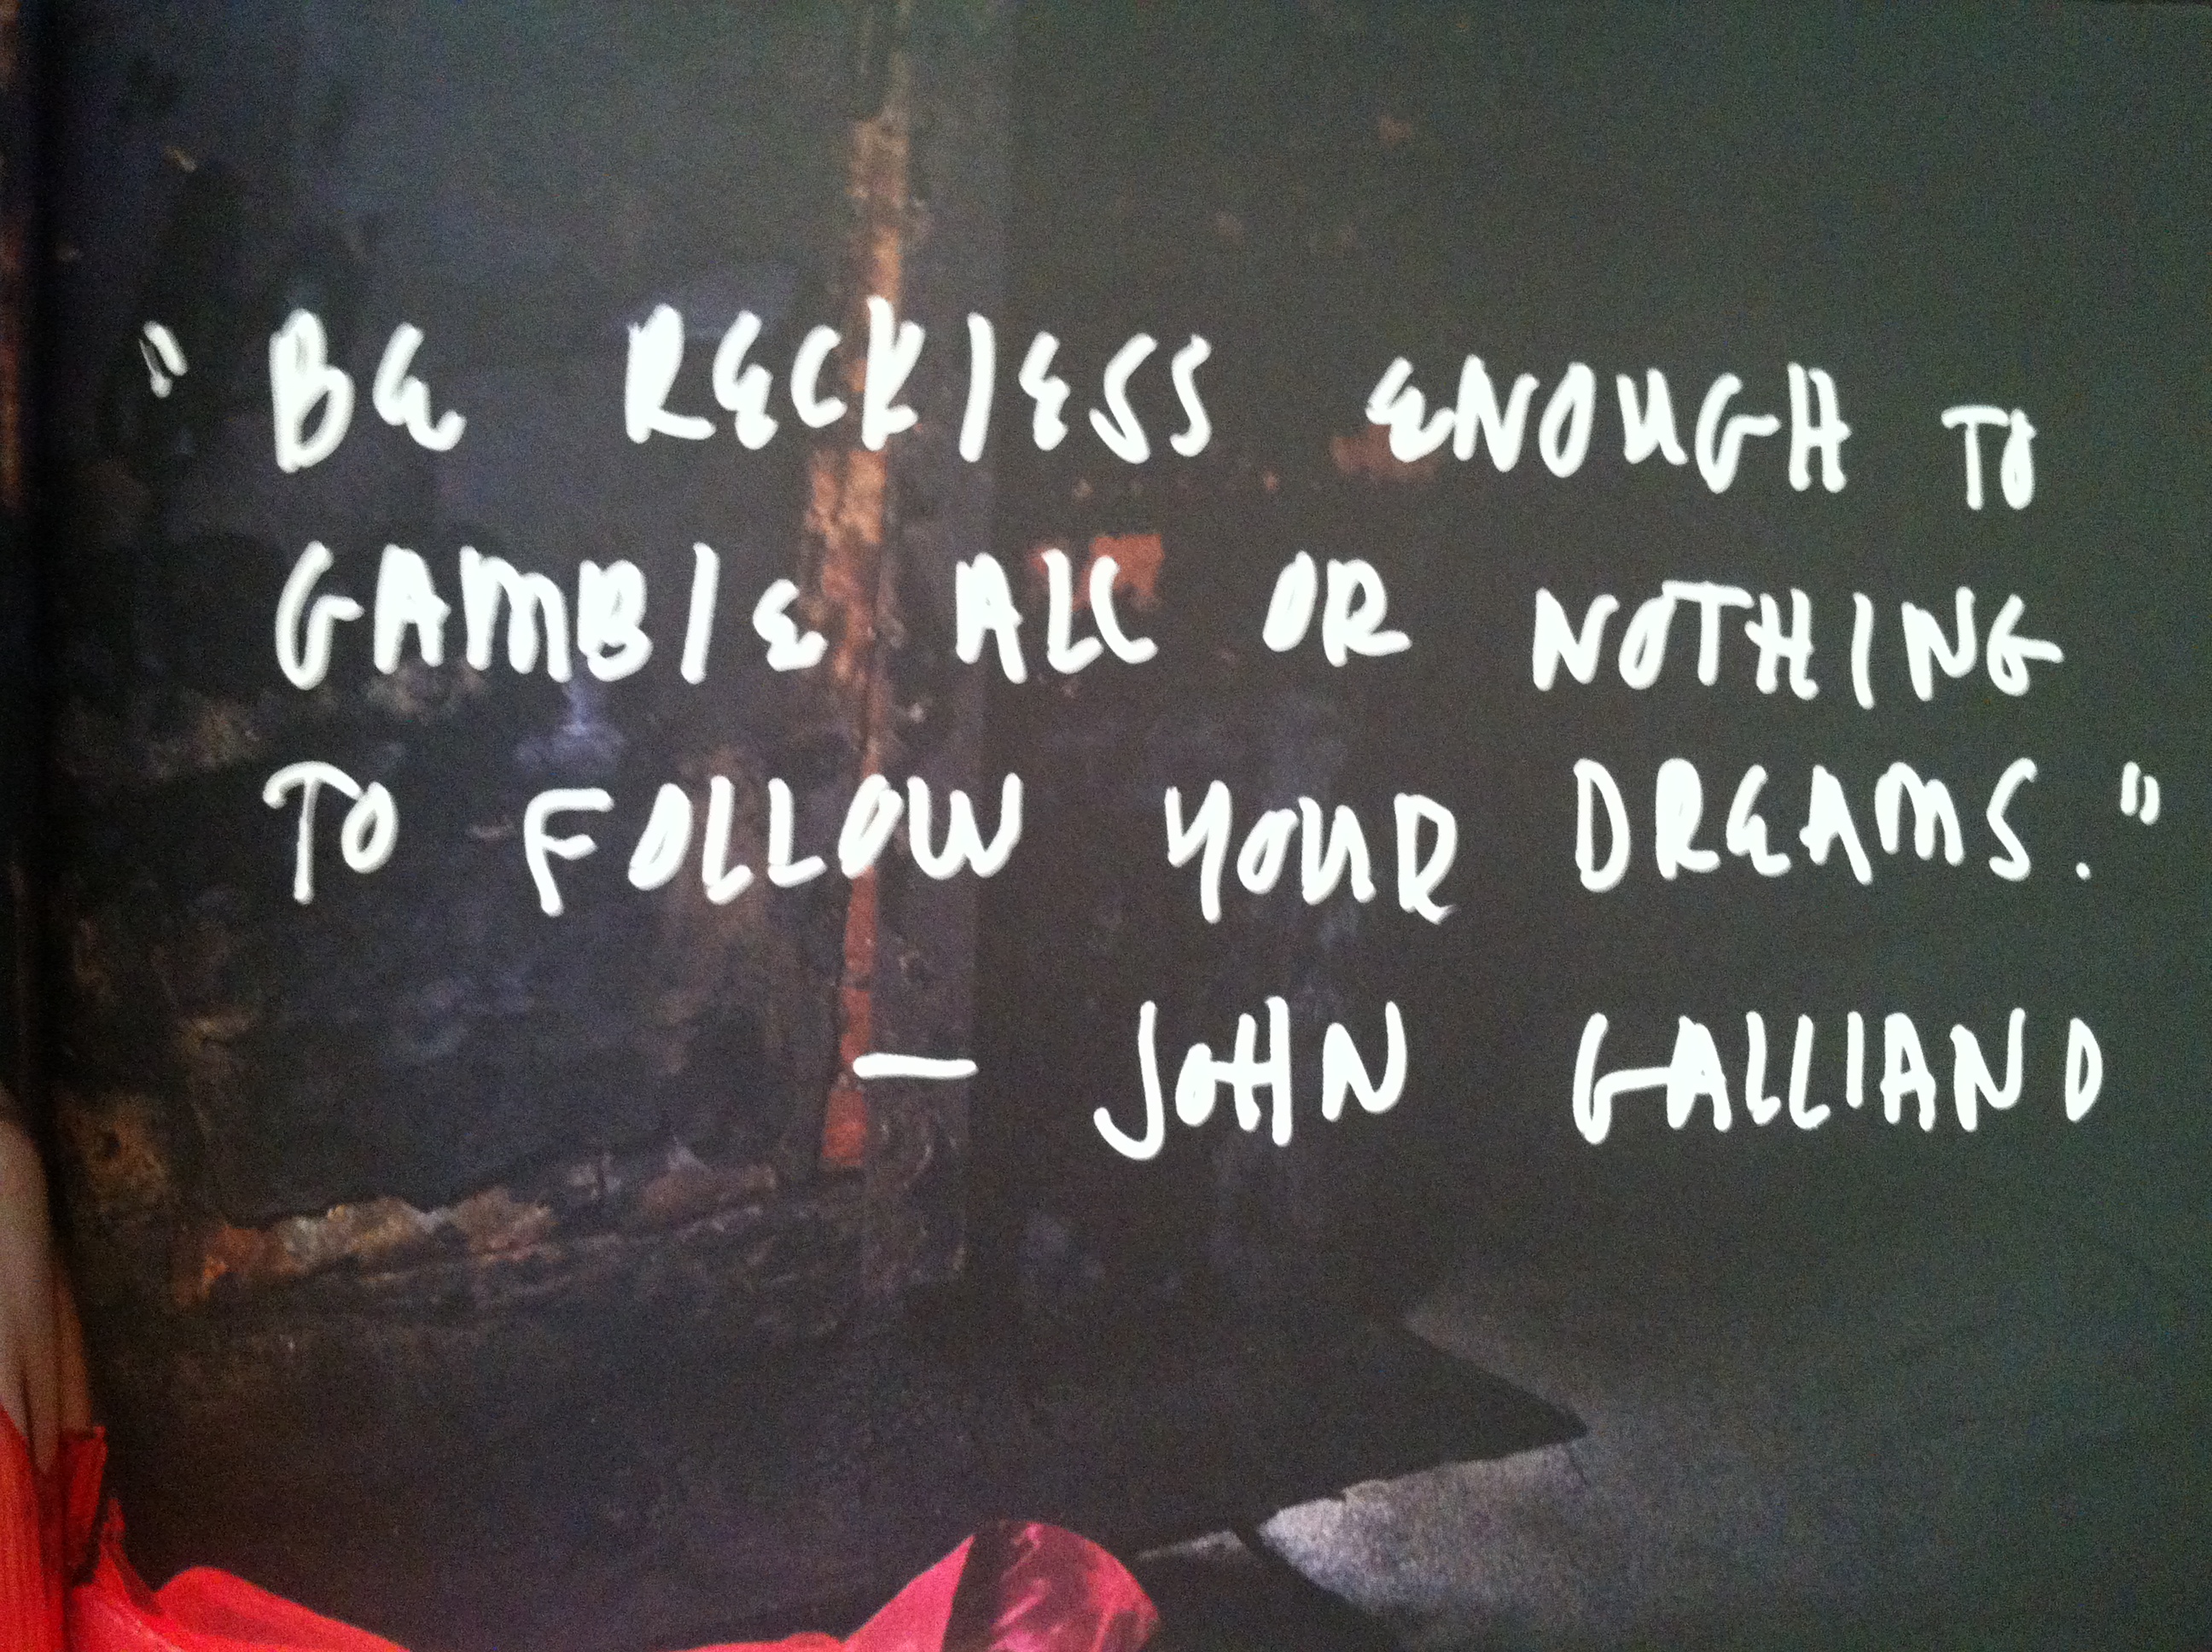 "BE RECKLESS ENOUGH TO
GAMBLE ALL OR NOTHING
TO FOLLOW YOUR DREAMS."
— JOHN GALLIANO